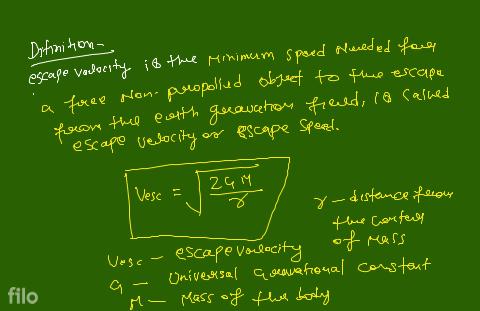 Definition -
escape velocity is the Minimum speed Needed for
a free Non-propelled object to the escape
from the earth gravation field, is called
escape velocity or escape speed.
Vesc = √2GM/r
r - distance from
the centers
of Mass
Vesc - escape velocity
G - Universal Gravational constant
M - Mass of the body
filo